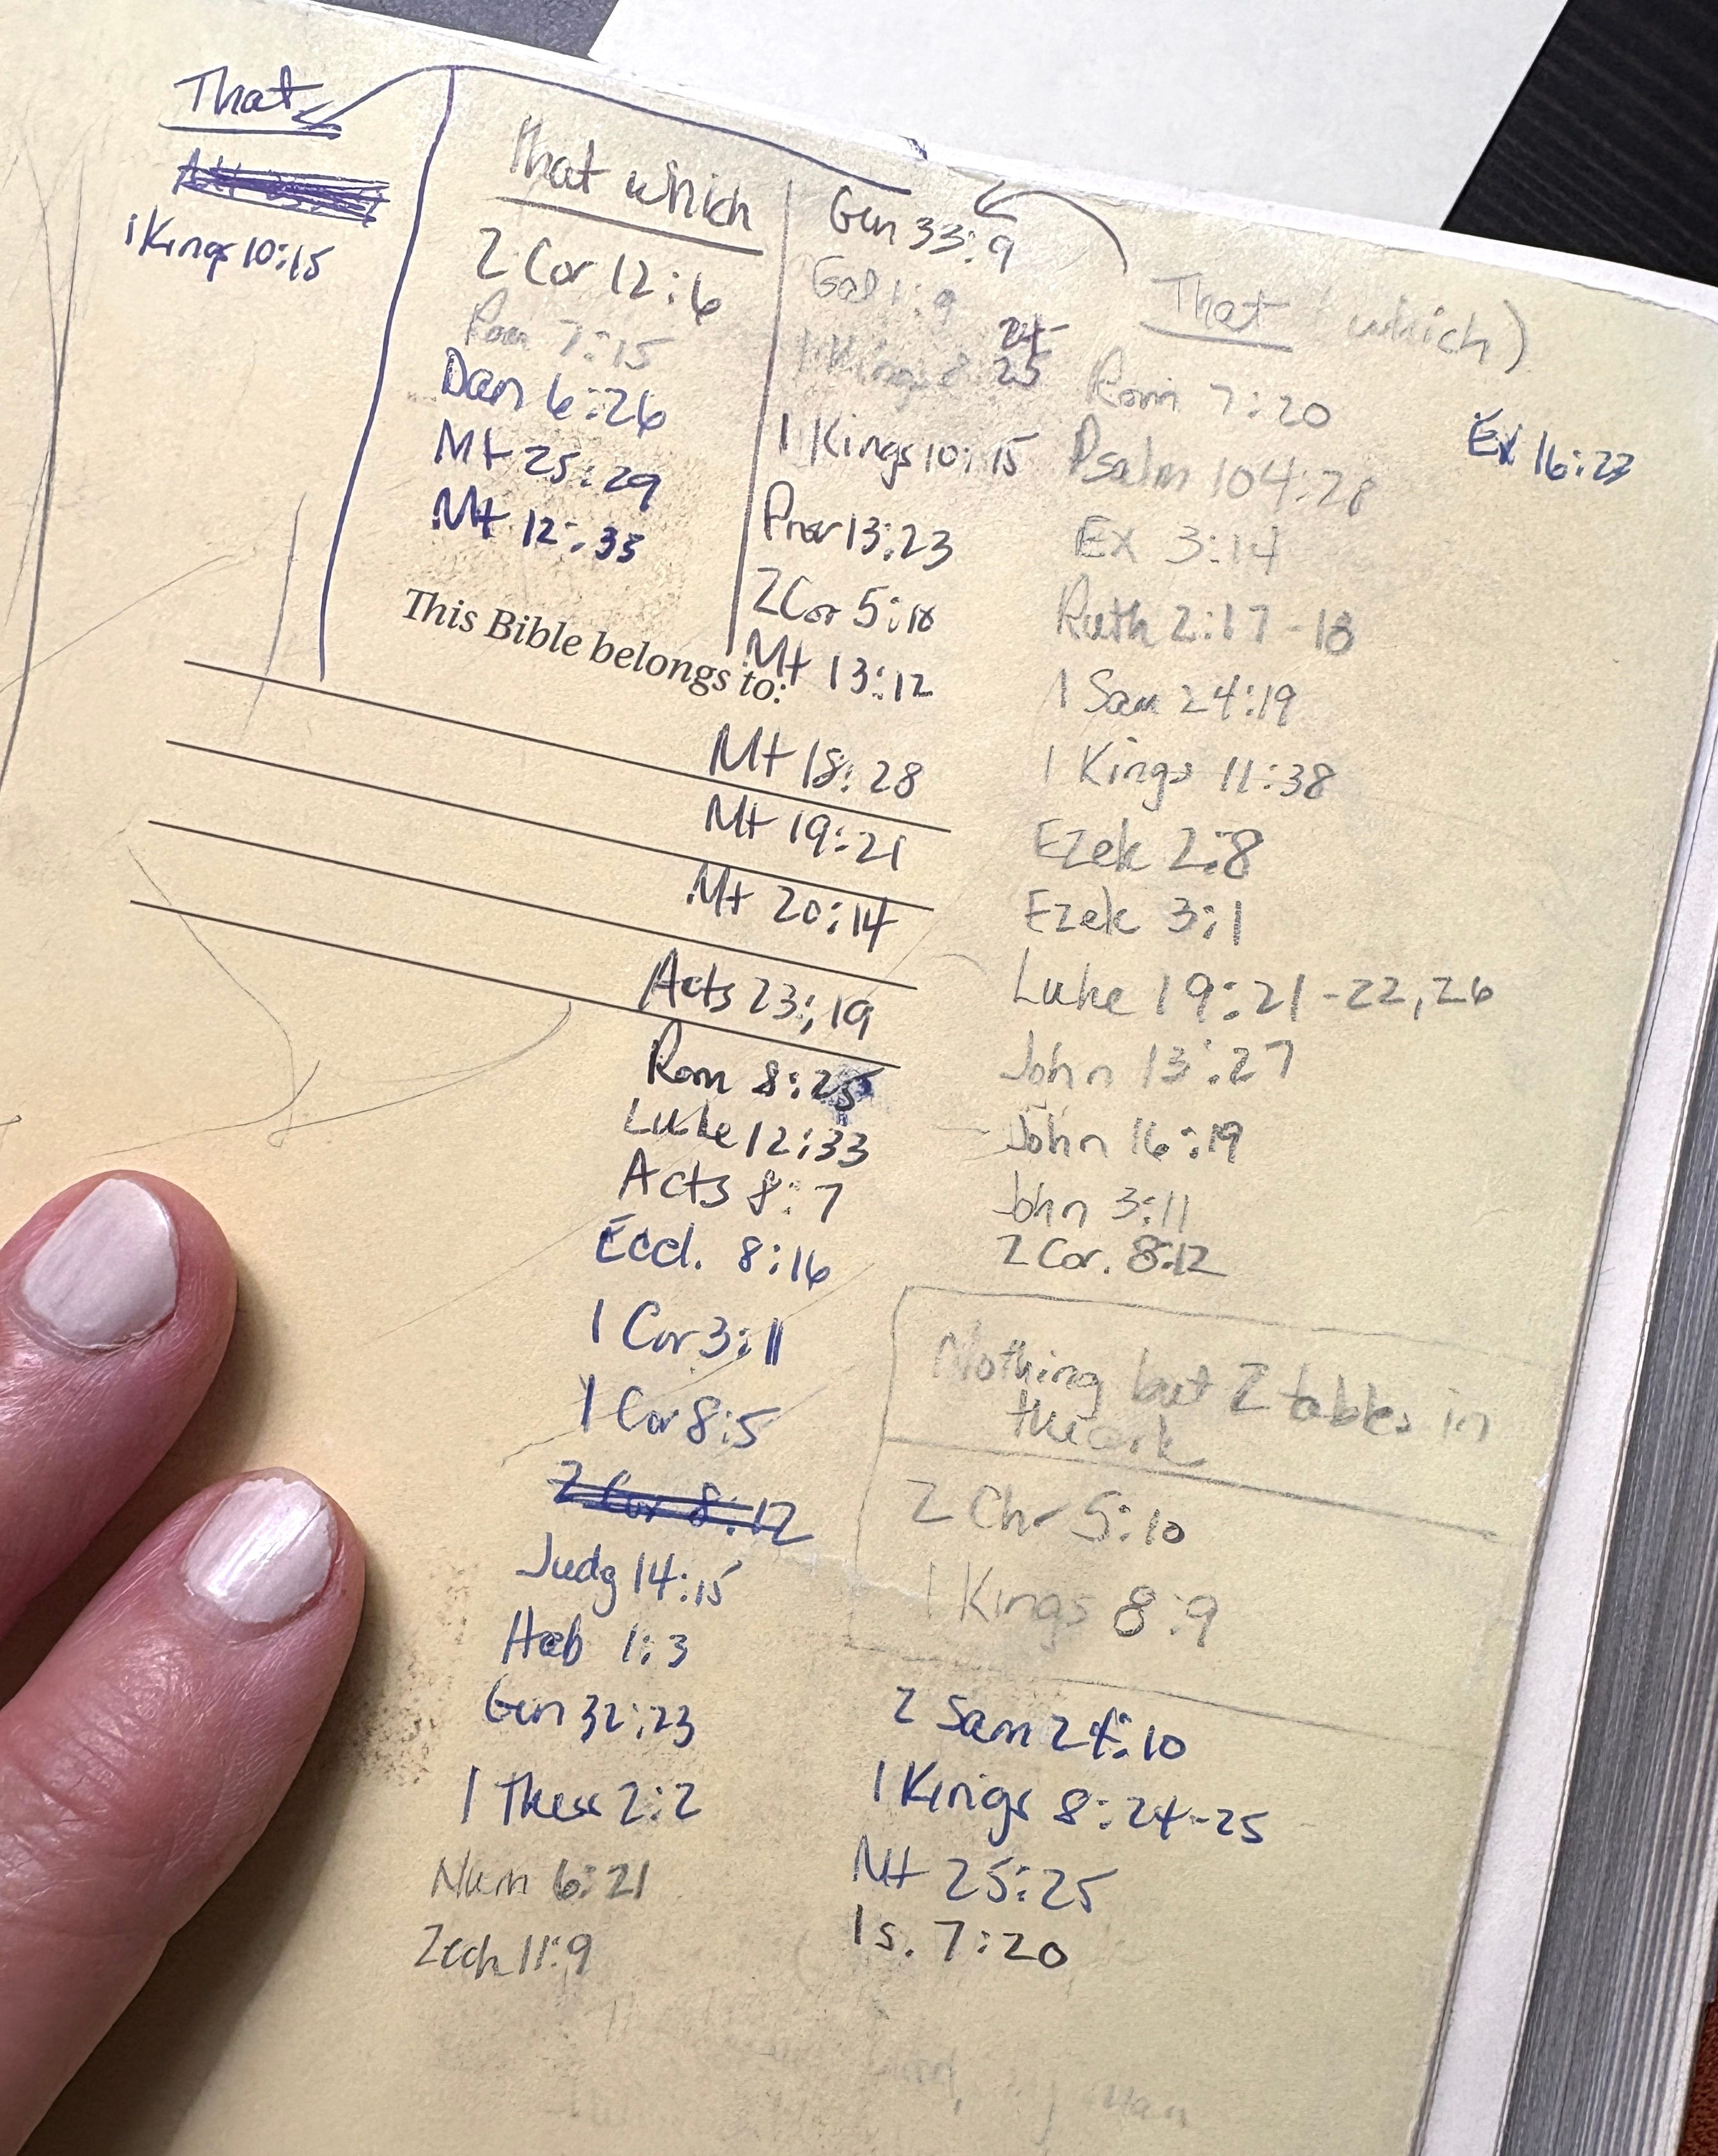 That
1 Kings 10:15
That which
2 Cor 12:6
Rom 7:15
Dan 6:26
Mt 25:29
Mt 12:33
This Bible belongs to:
Gen 33:9
Gal 1:9
24
1 Kings 8:25
1 Kings 10:15
Prov 13:23
2 Cor 5:10
Mt 13:12
Mt 18:28
Mt 19:21
Mt 20:14
Acts 23:19
Rom 8:25
Luke 12:33
Acts 8:7
Eccl. 8:16
1 Cor 3:11
1 Cor 8:5
2 Cor 8:12
Judg 14:15
Heb 1:3
Gen 32:23
1 Thess 2:2
Num 6:21
Zech 11:9
That (which)
Rom 7:20
Psalm 104:28
Ex 3:14
Ruth 2:17-18
1 Sam 24:19
1 Kings 11:38
Ezek 2:8
Ezek 3:1
Luke 19:21-22, 26
John 13:27
John 16:19
John 3:11
2 Cor. 8:12
Ex 16:23
Nothing but 2 tables in
the ark
2 Chr 5:10
1 Kings 8:9
2 Sam 24:10
1 Kings 8:24-25
Mt 25:25
Is. 7:20